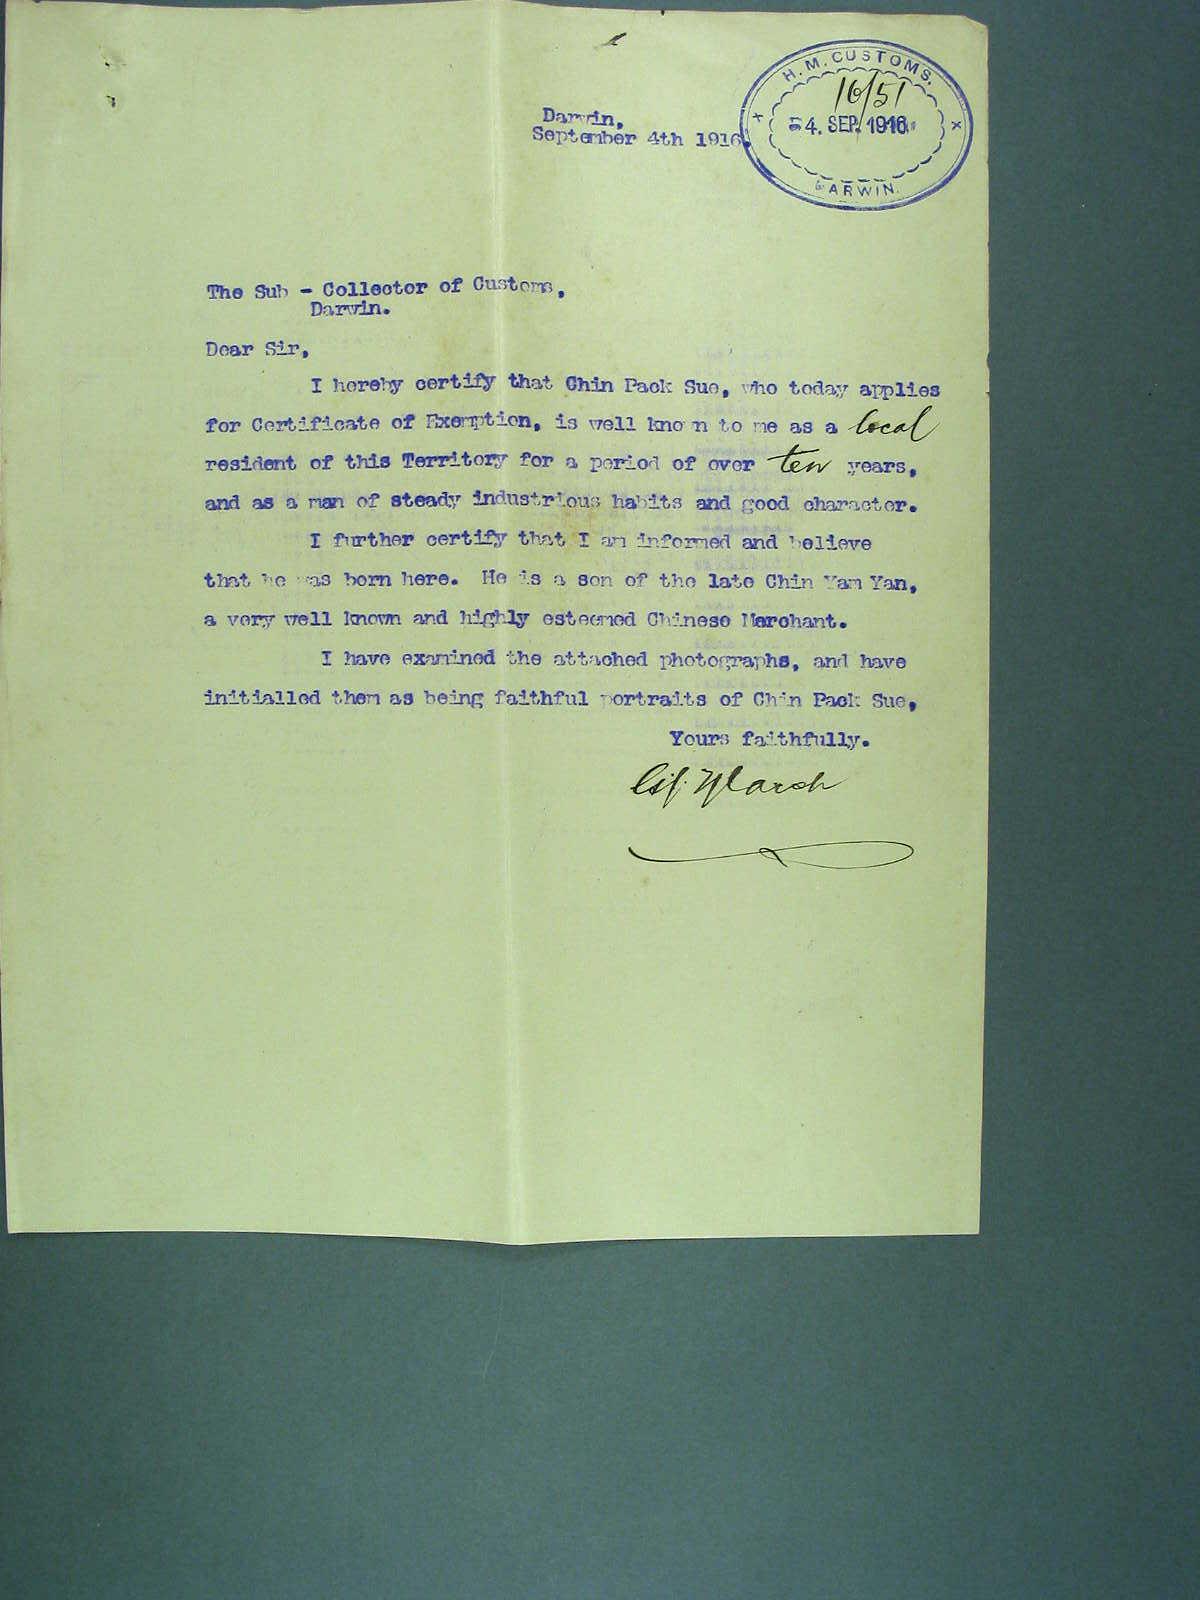 H.M. CUSTOMS.
16/51
4. SEP. 1916
DARWIN.
Darwin,
September 4th 1916.
The Sub - Collector of Customs,
Darwin.
Dear Sir,
I hereby certify that Chin Pack Sue, who today applies
for Certificate of Exemption, is well known to me as a local
resident of this Territory for a period of over ten years,
and as a man of steady industrious habits and good character.
I further certify that I am informed and believe
that he was born here. He is a son of the late Chin Yam Yan,
a very well known and highly esteemed Chinese Merchant.
I have examined the attached photographs, and have
initialled them as being faithful portraits of Chin Pack Sue,
Yours faithfully.